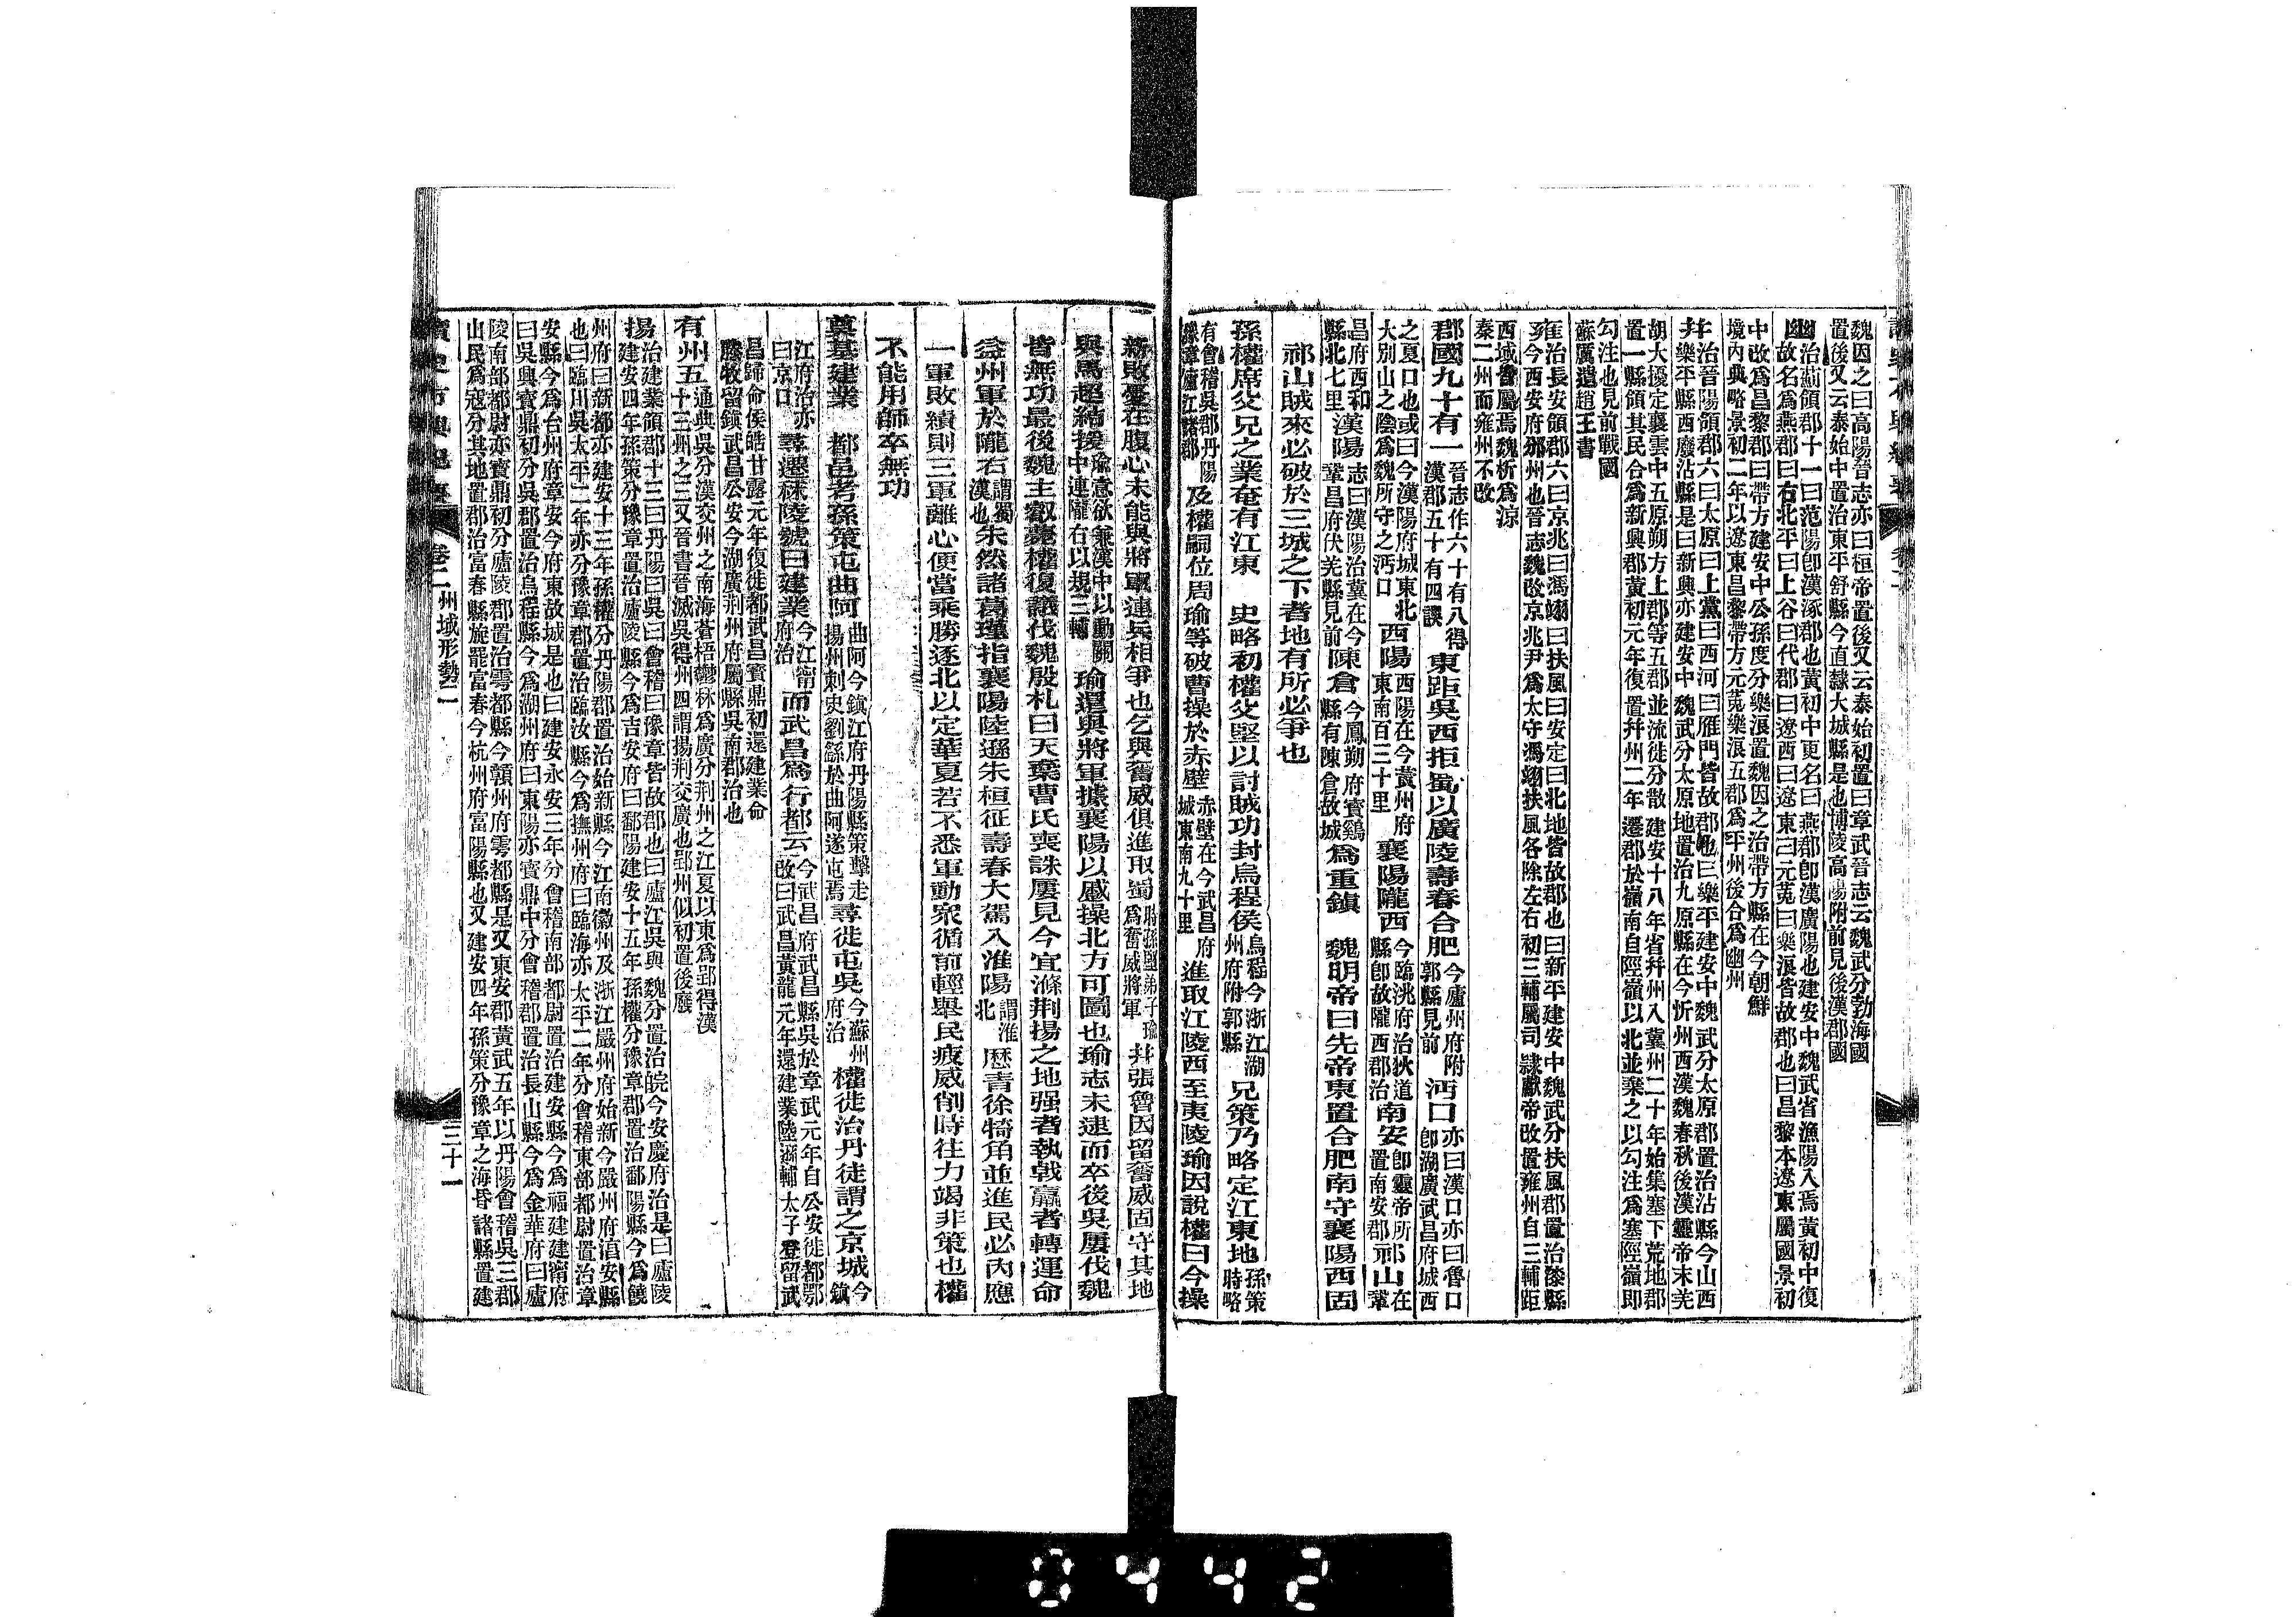 魏因之曰高陽晉志亦曰桓帝置後又云泰始初置曰章武晉志云魏武分勃海國
置後又云泰始中置治東平舒縣今直隸大城縣是也博陵高陽附前見後漢郡國
幽治薊領郡十一曰范陽卽漢涿郡也黃初中更名曰燕郡卽漢廣陽也建安中魏武省漁陽入焉黃初中復
故名爲燕郡曰右北平曰上谷曰代郡曰遼西曰遼東曰元菟曰樂浪皆故郡也曰昌黎本遼東屬國景初
中改爲昌黎郡曰帶方建安中公孫度分樂浪置魏因之治帶方縣在今朝鮮
境內典略景初二年以遼東昌黎帶方元菟樂浪五郡爲平州後合爲幽州
幷治晉陽領郡六曰太原曰上黨曰西河曰雁門皆故郡也曰樂平建安中魏武分太原郡置治沾縣今山西
樂平縣西廢沾縣是曰新興亦建安中魏武分太原地置治九原縣在今忻州西漢魏春秋後漢靈帝末羌
胡大擾定襄雲中五原朔方上郡等五郡並流徙分散建安十八年省幷州入冀州二十年始集塞下荒地郡
置一縣領其民合爲新興郡黃初元年復置幷州二年遷郡於嶺南自陘嶺以北並棄之以勾注爲塞陘嶺卽
勾注也見前戰國
蘇厲遺趙王書
雍治長安領郡六曰京兆曰馮翊曰扶風曰安定曰北地皆故郡也曰新平建安中魏武分扶風郡置治漆縣
今西安府邠州也晉志魏改京兆尹爲太守馮翊扶風各除左右初三輔屬司隷獻帝改置雍州自三輔距
西域皆屬焉魏析爲涼
秦二州而雍州不改
郡國九十有一晉志作六十有八得漢郡五十有四誤東距吳西拒蜀以廣陵壽春合肥今廬州府附郭縣見前沔口亦曰漢口亦曰魯口卽湖廣武昌府城西
之夏口也或曰今漢陽府城東北大別山之陰爲魏所守之沔口西陽西陽在今黃州府東南百三十里襄陽隴西今臨洮府治狄道縣卽故隴西郡治南安卽靈帝所置南安郡祁山在鞏
昌府西和縣北七里漢易志曰漢陽治冀在今鞏昌府伏羌縣見前陳倉今鳳翔府寶鷄縣有陳倉故城爲重鎮 魏明帝曰先帝東置合肥南守襄陽西固
祁山賊來必破於三城之下者地有所必爭也
孫權席父兄之業奄有江東 史略初權父堅以討賊功封烏程侯烏程今浙江湖州府附郭縣兄策乃略定江東地孫策時略
有會稽吳郡丹陽豫章廬江諸郡及權嗣位周瑜等破曹操於赤壁赤壁在今武昌府城東南九十里進取江陵西至夷陵瑜因說權曰今操
新敗憂在腹心未能與將軍連兵相爭也乞與奮威俱進取蜀時孫堅弟子瑜爲奮威將軍幷張魯因留奮威固守其地
與馬超結援瑜意欲兼漢中以動關中連隴右以規三輔瑜還與將軍據襄陽以蹙操北方可圖也瑜志未逮而卒後吳屢伐魏
皆無功最後魏主叡薨權復議伐魏殷札曰天棄曹氏喪誅屢見今宜滌荆揚之地强者執戟羸者轉運命
益州軍於隴右謂蜀漢也朱然諸葛瑾指襄陽陸遜朱桓征壽春大駕入淮陽謂淮北歷青徐犄角並進民必內應
一軍敗績則三軍離心便當乘勝逐北以定華夏若不悉軍動衆循前輕舉民疲威削時往力竭非策也權
不能用師卒無功
奠基建業 都邑考孫策屯曲阿曲阿今鎮江府丹陽縣策擊走揚州刺史劉繇於曲阿遂屯焉尋徙屯吳今蘇州府治權徙治丹徒謂之京城今鎮
江府治亦曰京口尋遷秣陵號曰建業今江甯府治而武昌爲行都云今武昌府武昌縣吳於章武元年自公安徙都鄂改曰武昌黃龍元年還建業陸遜輔太子登留武
昌歸命侯皓甘露元年復徙都武昌寶鼎初還建業命
滕牧留鎮武昌公安今湖廣荆州府屬縣吳南郡治也
有州五通典吳分漢交州之南海蒼梧鬱林爲廣分荆州之江夏以東爲郢得漢
十三州之三又晉書晉滅吳得州四謂揚荆交廣也郢州似初置後廢
揚治建業領郡十三曰丹陽曰吳曰會稽曰豫章皆故郡也曰廬江吳與魏分置治皖今安慶府治是曰廬陵
建安四年孫策分豫章置治廬陵縣今爲吉安府曰鄱陽建安十五年孫權分豫章郡置治鄱陽縣今爲饒
州府曰新都亦建安十三年孫權分丹陽郡置治始新縣今江南徽州及浙江嚴州府始新今嚴州府淳安縣
也曰臨川吳太平二年亦分豫章郡置治臨汝縣今爲撫州府曰臨海亦太平二年分會稽東部都尉置治章
安縣今爲台州府章安今府東故城是也曰建安永安三年分會稽南部都尉置治建安縣今爲福建建甯府
曰吳興寶鼎初分吳郡置治烏程縣今爲湖州府曰東陽亦寶鼎中分會稽郡置治長山縣今爲金華府曰廬
陵南部都尉亦寶鼎初分廬陵郡置治雩都縣今贛州府雩都縣是又東安郡黃武五年以丹陽會稽吳三郡
山民爲寇分其地置郡治富春縣旋罷富春今杭州府富陽縣也又建安四年孫策分豫章之海昏諸縣置建
讀史方輿紀要 卷二 州域形勢二 三十一
0442